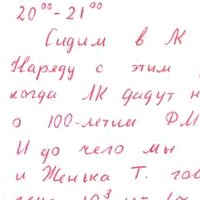 20⁰⁰-21⁰⁰
Сидим в ЛК
Наряду с этим
когда ЛК дадут н
о 100-летии ФМ
И до чего мы
и Женька Т. гов